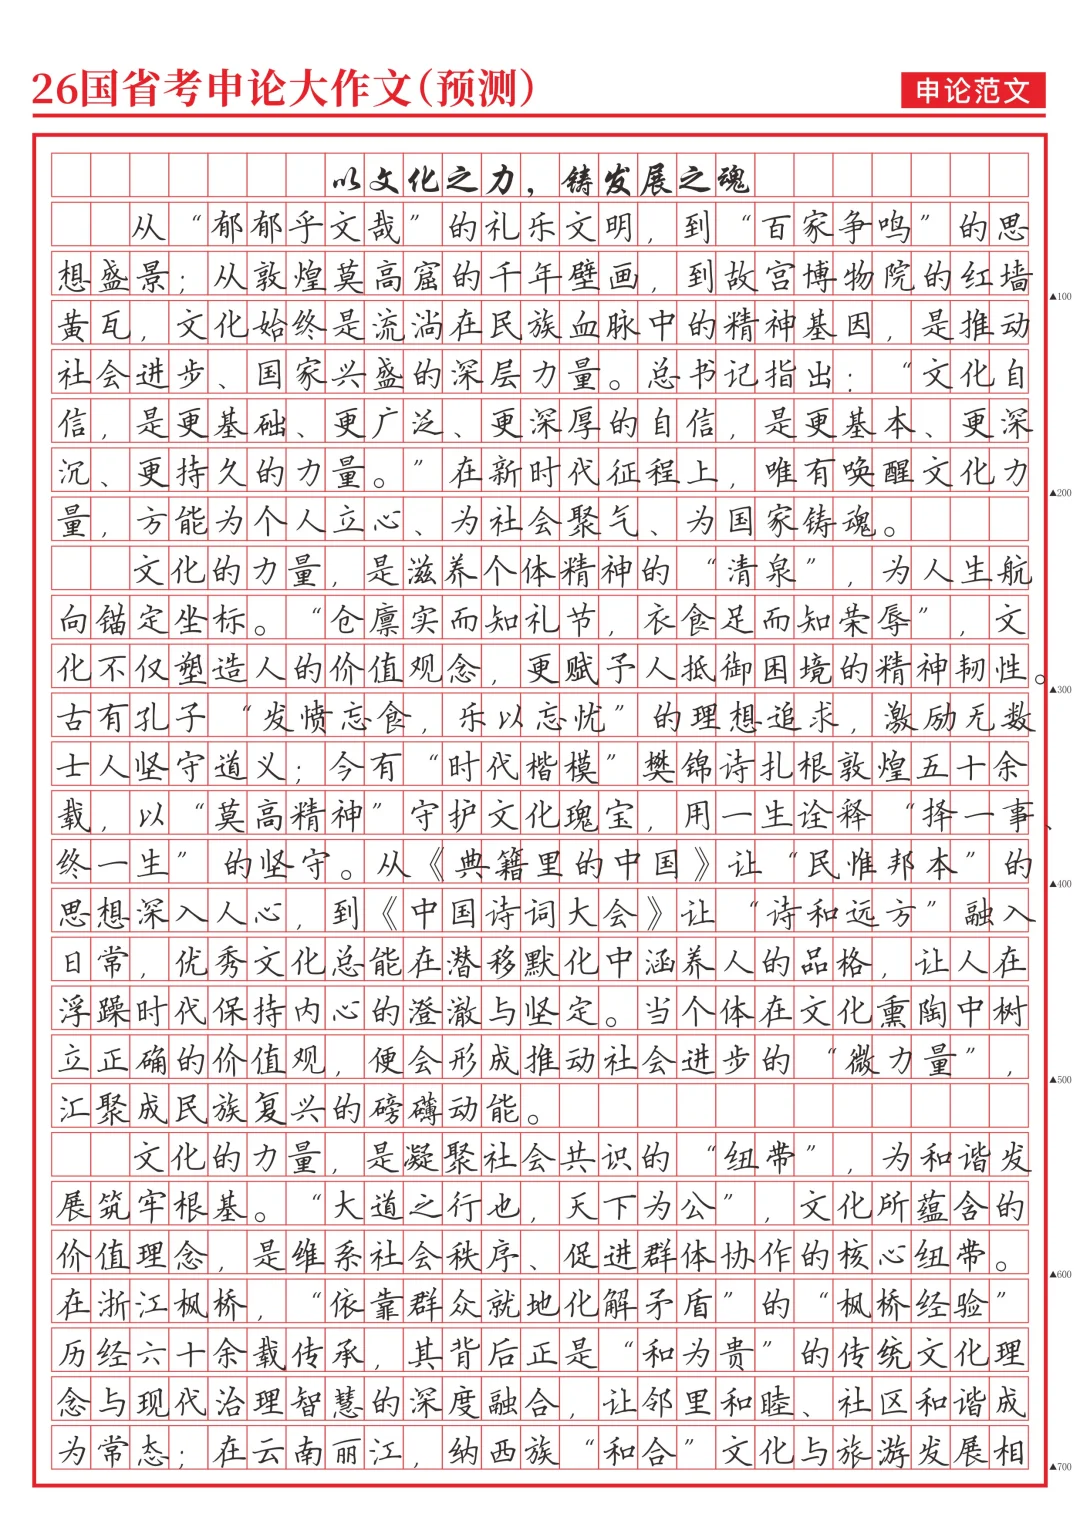 26国省考申论大作文(预测)
申论范文
以文化之力，铸发展之魂
从“郁郁乎文哉”的礼乐文明，到“百家争鸣”的思
想盛景；从敦煌莫高窟的千年壁画，到故宫博物院的红墙
▲100
黄瓦，文化始终是流淌在民族血脉中的精神基因，是推动
社会进步、国家兴盛的深层力量。总书记指出：“文化自
信，是更基础、更广泛、更深厚的自信，是更基本、更深
沉、更持久的力量。”在新时代征程上，唯有唤醒文化力
▲200
量，方能为个人立心、为社会聚气、为国家铸魂。
文化的力量，是滋养个体精神的“清泉”，为人生航
向锚定坐标。“仓廪实而知礼节，衣食足而知荣辱”，文
化不仅塑造人的价值观念，更赋予人抵御困境的精神韧性。
▲300
古有孔子“发愤忘食，乐以忘忧”的理想追求，激励无数
士人坚守道义；今有“时代楷模”樊锦诗扎根敦煌五十余
载，以“莫高精神”守护文化瑰宝，用一生诠释“择一事、
终一生”的坚守。从《典籍里的中国》让“民惟邦本”的
▲400
思想深入人心，到《中国诗词大会》让“诗和远方”融入
日常，优秀文化总能在潜移默化中涵养人的品格，让人在
浮躁时代保持内心的澄澈与坚定。当个体在文化熏陶中树
立正确的价值观，便会形成推动社会进步的“微力量”，
▲500
汇聚成民族复兴的磅礴动能。
文化的力量，是凝聚社会共识的“纽带”，为和谐发
展筑牢根基。“大道之行也，天下为公”，文化所蕴含的
价值理念，是维系社会秩序、促进群体协作的核心纽带。
▲600
在浙江枫桥，“依靠群众就地化解矛盾”的“枫桥经验”
历经六十余载传承，其背后正是“和为贵”的传统文化理
念与现代治理智慧的深度融合，让邻里和睦、社区和谐成
为常态；在云南丽江，纳西族“和合”文化与旅游发展相
▲700